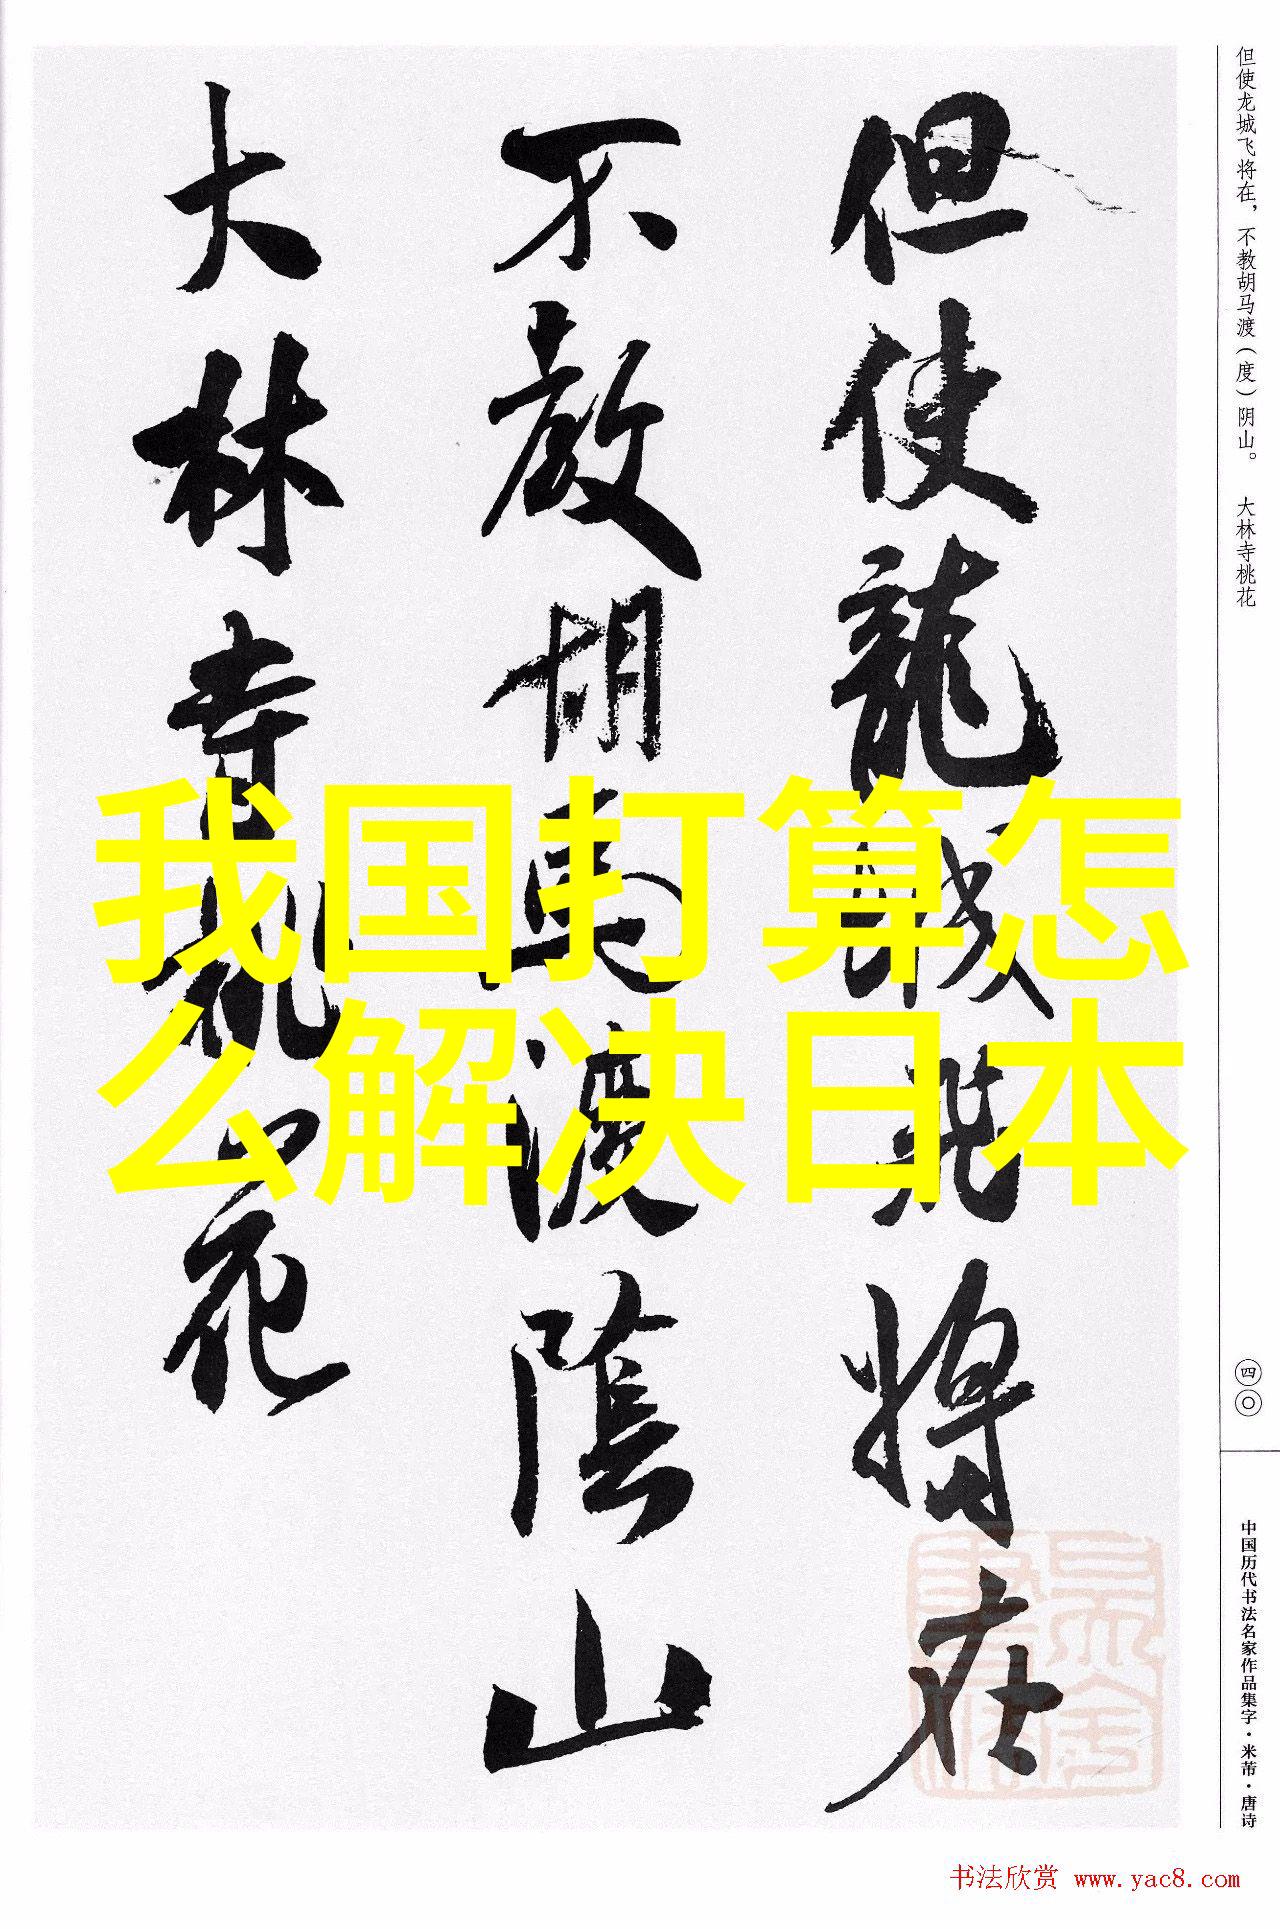 我国打算怎
么解决日本
但使龍城飛將在
不教胡馬渡陰山
大林寺桃花
但使龙城飞将在，不教胡马渡（度）阴山。 大林寺桃花
四〇
中国历代书法名家作品集字·米芾·唐诗
书法欣赏 www.yac8.com